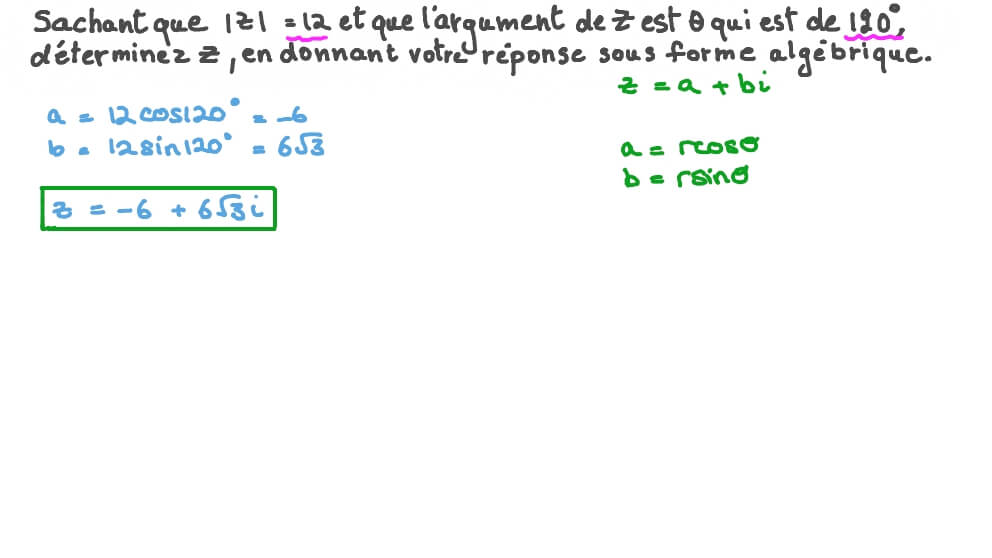 Sachant que |z| = 12 et que l'argument de z est θ qui est de 120°,
déterminez z, en donnant votre réponse sous forme algébrique.
z = a + bi
a = 12cos120° = -6
b = 12sin120° = 6√3
a = rcosθ
b = rsinθ
z = -6 + 6√3i